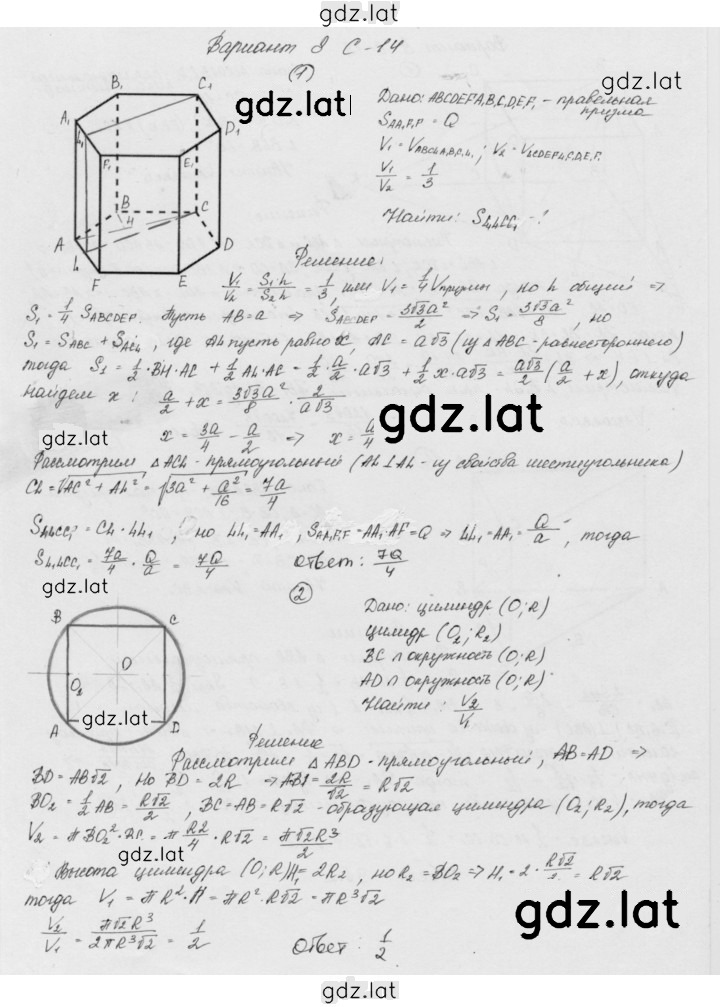 gdz.lat
Вариант 8 С-14
①
gdz.lat
Дано: ABCDEFA₁B₁C₁D₁E₁F₁ - правельная призма
S_AA₁F₁F = Q
V₁ = V_ABCLA₁B₁C₁L₁ ; V₂ = V_LCDEFL₁C₁D₁E₁F₁
V₁/V₂ = 1/3
Найти: S_L₁LCC₁ - ?
B₁ C₁
A₁ D₁
L₁ F₁ E₁
B H C
A D
L
F E
Решение:
V₁/V₂ = S₁h/S₂h = 1/3, или V₁ = 1/4 Vпризмы, но h общий ⇒
S₁ = 1/4 S_ABCDEF. Пусть AB = a ⇒ S_ABCDEF = 3√3a²/2 ⇒ S₁ = 3√3a²/8, но
S₁ = S_ABC + S_ACL, где AL пусть равно x, AC = a√3 (из △ABC - равнестороннего)
тогда S₁ = 1/2 · BH · AC + 1/2 AL · AC = 1/2 · a/2 · a√3 + 1/2 x · a√3 = a√3/2 (a/2 + x), откуда
найдем x : a/2 + x = 3√3a²/8 · 2/a√3
gdz.lat
x = 3a/4 - a/2 ⇒ x = a/4
Рассмотрим △ACL - прямоугольный (AL⊥AL - из свойства шестиугольника)
CL = √AC² + AL² = √3a² + a²/16 = 7a/4
S_L₁LCC₁ = CL · LL₁ , но LL₁ = AA₁ , S_AA₁F₁F = AA₁ · AF = Q ⇒ LL₁ = AA₁ = Q/a , тогда
S_L₁LCC₁ = 7a/4 · Q/a = 7Q/4 ответ: 7Q/4
gdz.lat
②
B C
O
O₂
gdz.lat
A D
Дано: цилиндр (O; R)
цилидр (O₂; R₂)
BC ∩ окружность (O; R)
AD ∩ окружность (O; R)
Найти : V₂/V₁
Решение
Рассмотрим △ABD - прямоугольный, AB = AD ⇒
BD = AB√2 , но BD = 2R ⇒ AB = 2R/√2 = R√2
BO₂ = 1/2 AB = R√2/2 , BC = AB = R√2 - образующая цилиндра (O₂; R₂), тогда
V₂ = π BO₂² · BC = π R2/4 · R√2 = π√2R³/2
gdz.lat
Высота цилиндра (O; R) H₁ = 2R₂ , но R₂ = BO₂ ⇒ H₁ = 2 · R√2/2 = R√2
тогда V₁ = πR² · H = πR² · R√2 = πR³√2
V₂/V₁ = π√2R³/2πR³√2 = 1/2 ответ: 1/2
gdz.lat
gdz.lat